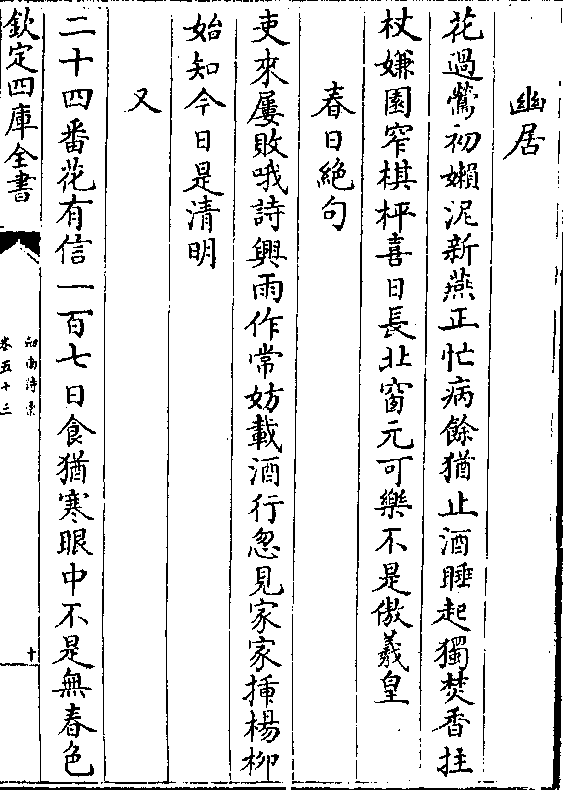 幽居
花過鶯初嬾泥新燕正忙病餘猶止酒睡起獨焚香拄
杖嫌園窄棋枰喜日長北窗元可樂不是傲羲皇
春日絶句
吏來屢敗哦詩興雨作常妨載酒行忽見家家插楊柳
始知今日是清明
又
二十四番花有信一百七日食猶寒眼中不是無春色
欽定四庫全書
劍南詩稾
卷五十三
十